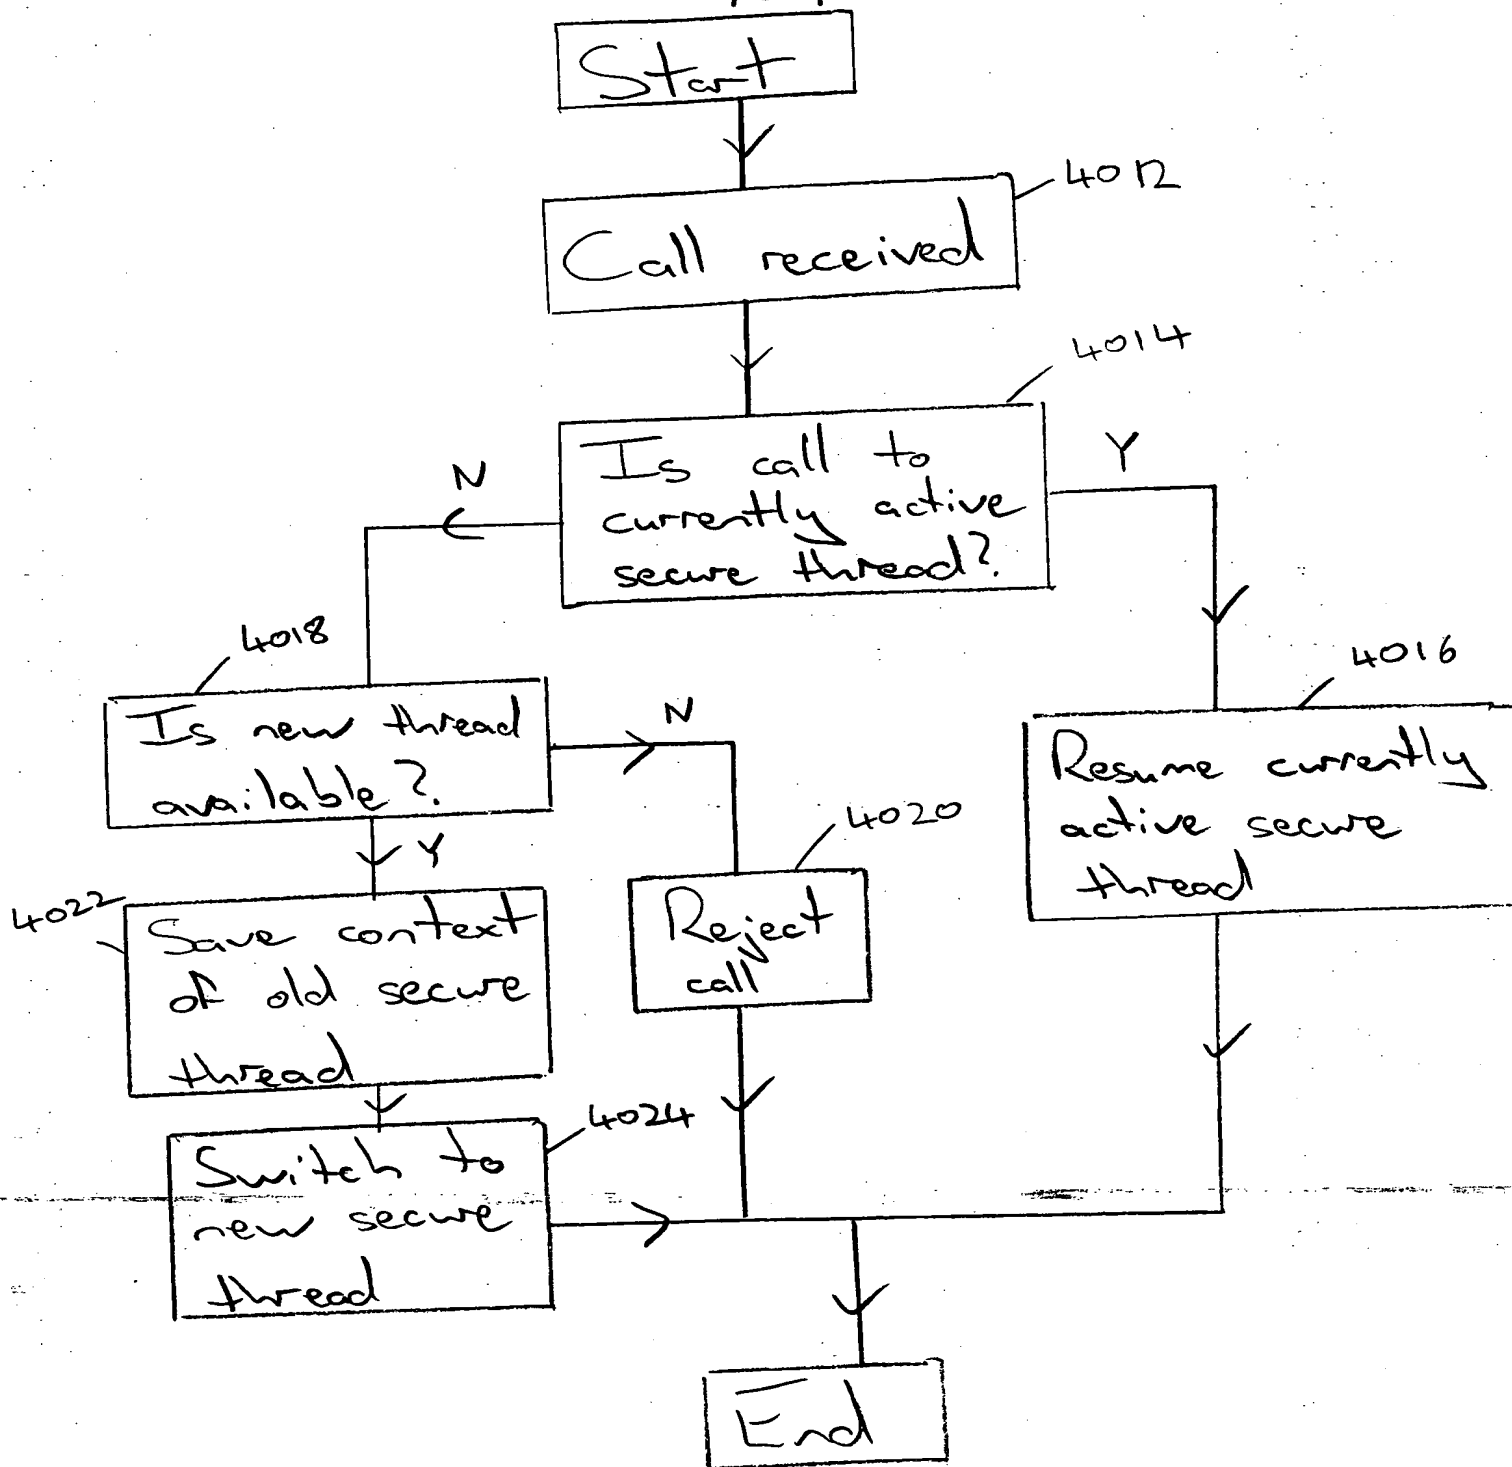 Start
4012
Call received
4014
Is call to
currently active
secure thread?
N
Y
4018
Is new thread
available?
N
4016
Resume currently
active secure
thread
4020
Reject
call
Y
4022
Save context
of old secure
thread
4024
Switch to
new secure
thread
End